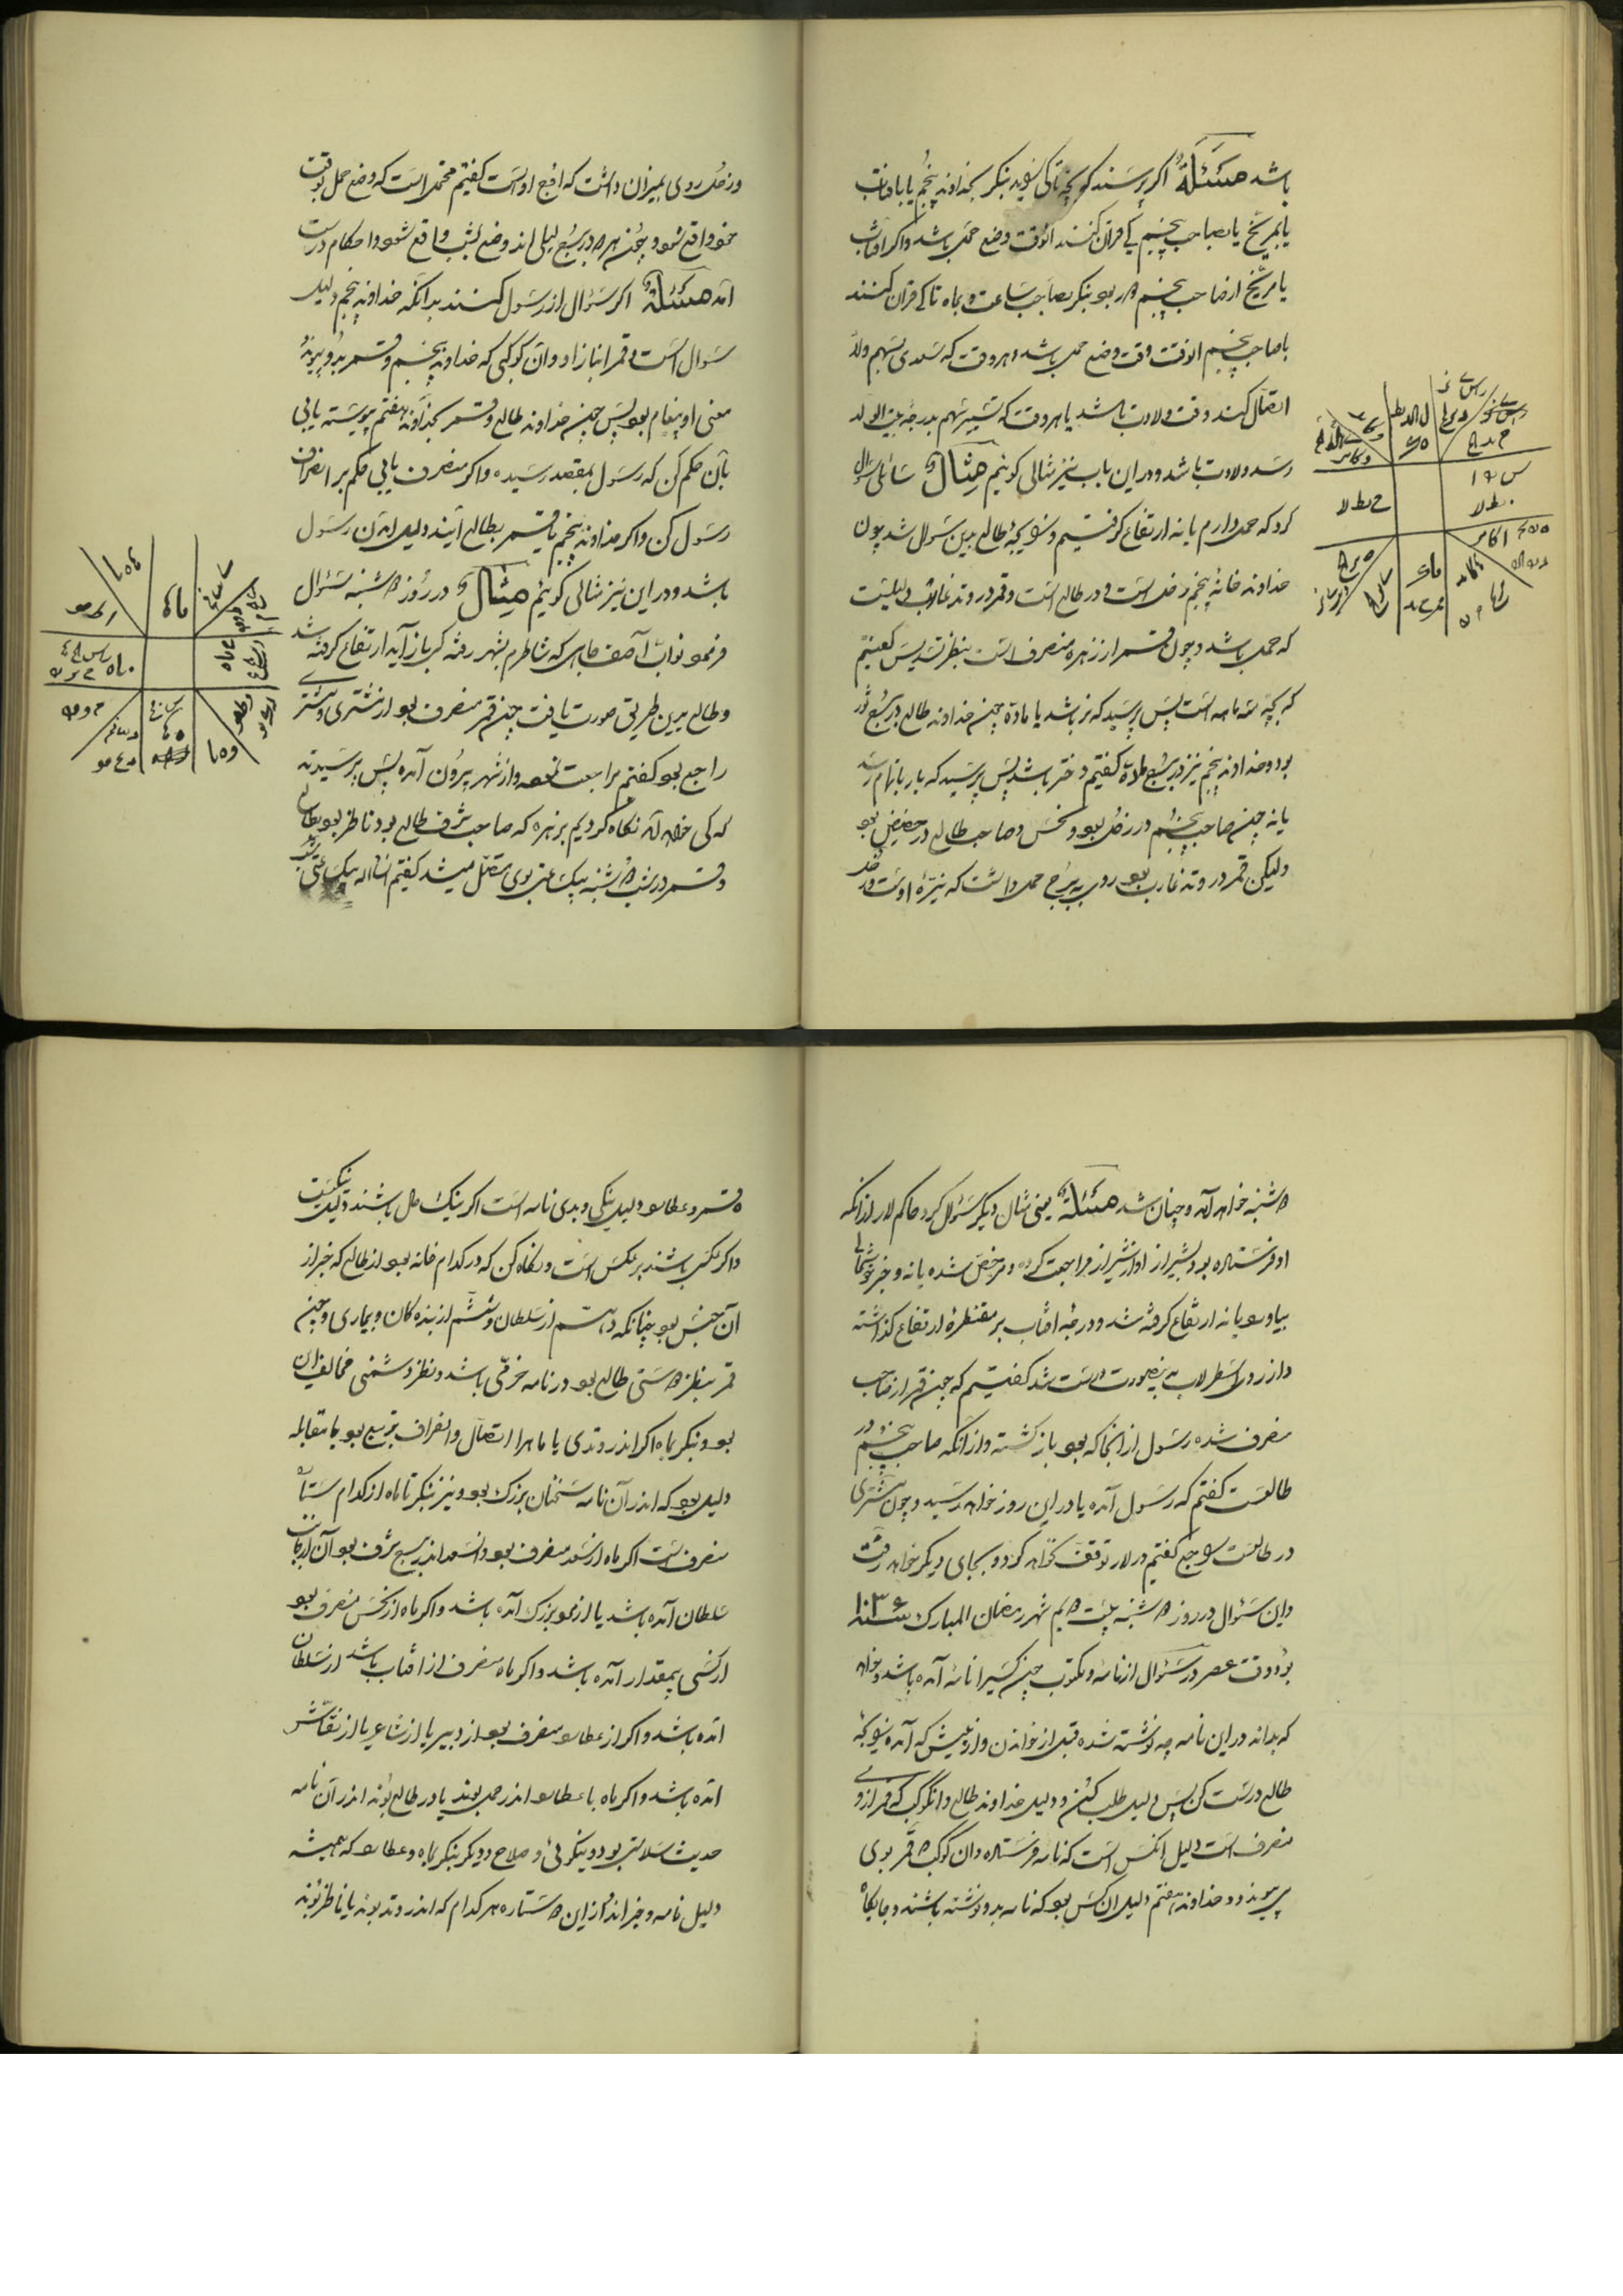 باشد مسئلة اگر پرسند که بچه تا کی بزاید بنگر بخداوند پنجم یا بافتاب
یا بمریخ یا بصاحب پنجم کی قران کنند آنوقت وضع حمل باشد و اگر آفتاب
یا مریخ از صاحب پنجم دور بود بنگر بصاحب ساعت و بماه تا کی قران کنند
با صاحب پنجم آنوقت وقت وضع حمل باشد و هر وقت که سعدی بسهم ولد
اتصال کند وقت ولادت باشد یا هر وقت که تسییر سهم بدرجه بیت الولد
رسد ولادت باشد و در این باب نیز مثالی گوئیم مثال سائلی سؤال
کرد که حمل دارم یا نه ارتفاع گرفتیم و طالع بدین سؤال شد چون
خداوند خانهٔ پنجم زحل است و در طالع است و قمر در وتد غارب دلیلست
که حمل باشد و چون قمر از زهره منصرف است بنظر تسدیس گفتیم
که بچه سه ماهه است پس پرسید که نر باشد یا ماده چون خداوند طالع در برج ثور
بود و خداوند پنجم نیز در برج ماده گفتیم دختر باشد پس پرسید که بار بانهام رسد
یا نه چون صاحب پنجم زحل بود و نحس و صاحب طالع در حضیض بود
ولیکن قمر در وتد غارب بود روی به برج حمل داشت که نیّره اوست و زحل
و زحل روی بمیزان داشت که اوج اوست گفتیم محتمل است که وضع حمل بوقت
خود واقع شود و چون هر دو در برج لیلی اند وضع بشب واقع شود و احکام درست
آمد مسئلة اگر سؤال از رسول کنند بدانکه خداوند پنجم دلیل
سؤال است و قمر انباز او و آن کوکبی که خداوند پنجم و قمر بدو پیوندد
معنی او پیغام بود پس چون خداوند طالع و قمر بخداوند هفتم پیوسته یابی
بآن حکم کن که رسول بمقصد رسیده و اگر منصرف یابی حکم بر انصراف
رسول کن و اگر خداوند پنجم یا قمر بطالع آیند دلیل آمدن رسول
باشد و در این نیز مثالی گوئیم مثال در روز دوشنبه سئوال
فرمود نواب آصف جاهی که شاطرم بشهر رفته کی باز آید ارتفاع گرفته شد
و طالع بدین طریق صورت یافت چون قمر منصرف بود از مشتری و مشتری
راجع بود گفتم مراجعت نموده و از شهر بیرون آمده پس پرسیدند
که کی خواهد آمد نگاه کردیم بزهره که صاحب شرف طالع بود ناظر بود بطالع
و قمر در شب دوشنبه بیک ساعتی بوی متصل میشد گفتیم انشاالله بیکساعتی شب
دوشنبه خواهد آمد و چنان شد مسئلة یعنی مثال دیگر سئوال کرد حاکم لار از آنکه
او فرستاده بود بشیراز او از شیراز مراجعت کرده و مرخص شده یا نه و خبر خوشحالی
بیاورد یا نه ارتفاع گرفته شد و درجهٔ آفتاب بر مقنطرهٔ ارتفاع گذاشته
و از روی اسطرلاب بدینصورت درست شد گفتیم که چون قمر از صاحب
منصرف شده رسول از آنجا که بود بازگشته و از آنکه صاحب پنجم در
طالعست گفتم که رسول آمده یا در این روز خواهد رسید و چون مشتری
در طالعست و راجع گفتم در لار توقف نخواهد کرد و بجای دیگر خواهد رفت
و این سئوال در روز دوشنبه بیست دویم شهر رمضان المبارک سنه ۱۰۳۶
بود وقت عصر در سئوال از نامه و مکتوب چون کسیرا نامه آمده باشد و خواهد
که بداند در این نامه چه نوشته شده قبل از خواندن و از پیش که آمده
طالع درست کن پس دلیل طلب کن و دلیل خداوند طالع و آن کوکب که قمر از وی
منصرف است دلیل آنکس است که نامه فرستاده و آن کوکب که قمر بوی
پیوندد و خداوند هفتم دلیل آن کس بود که نامه بدو نوشته باشند و جایگاه
قمر و عطارد دلیل نیکی و بدی نامه است اگر نیک حال باشند دلیل نیکیست
و اگر بعکس باشند بر عکس است و نگاه کن که در کدام خانه بود از طالع که خبر از
آن جنس بود چنانکه دهم از سلطان و ششم از بندگان و بیماری و چون
قمر بنظر دوستی طالع بود در نامه خرّمی باشد و نظر دشمنی مخالف آن
بود و بنگر بماه اگر اندر وتدی یا ماه را اتصال و انصراف بتربیع بود یا مقابله
دلیل بود که اندر آن نامه سخنان بزرگ بود و نیز بنگر تا ماه از کدام ستاره
منصرف است اگر ماه از سعد منصرف بود و آنسعد اندر برج شرف بود آن از جانب
سلطان آمده باشد یا از مردم بزرگ آمده باشد و اگر ماه از نحس منصرف بود
از کسی بیمقدار آمده باشد و اگر ماه منصرف از آفتاب باشد از سلطان
آمده باشد و اگر از عطارد منصرف بود از دبیر یا از شاعر یا از نقّاش
آمده باشد و اگر ماه با عطارد اندر حمل بوند یا در طالع بوند اندر آن نامه
حدیث سلامتی بود و نیکوئی و صلاح و دیگر بنگر بماه و عطارد که همیشه
دلیل نامه و خبر اند از این دو ستاره هر کدام که اندر وتد بوند یا ناظر بوند